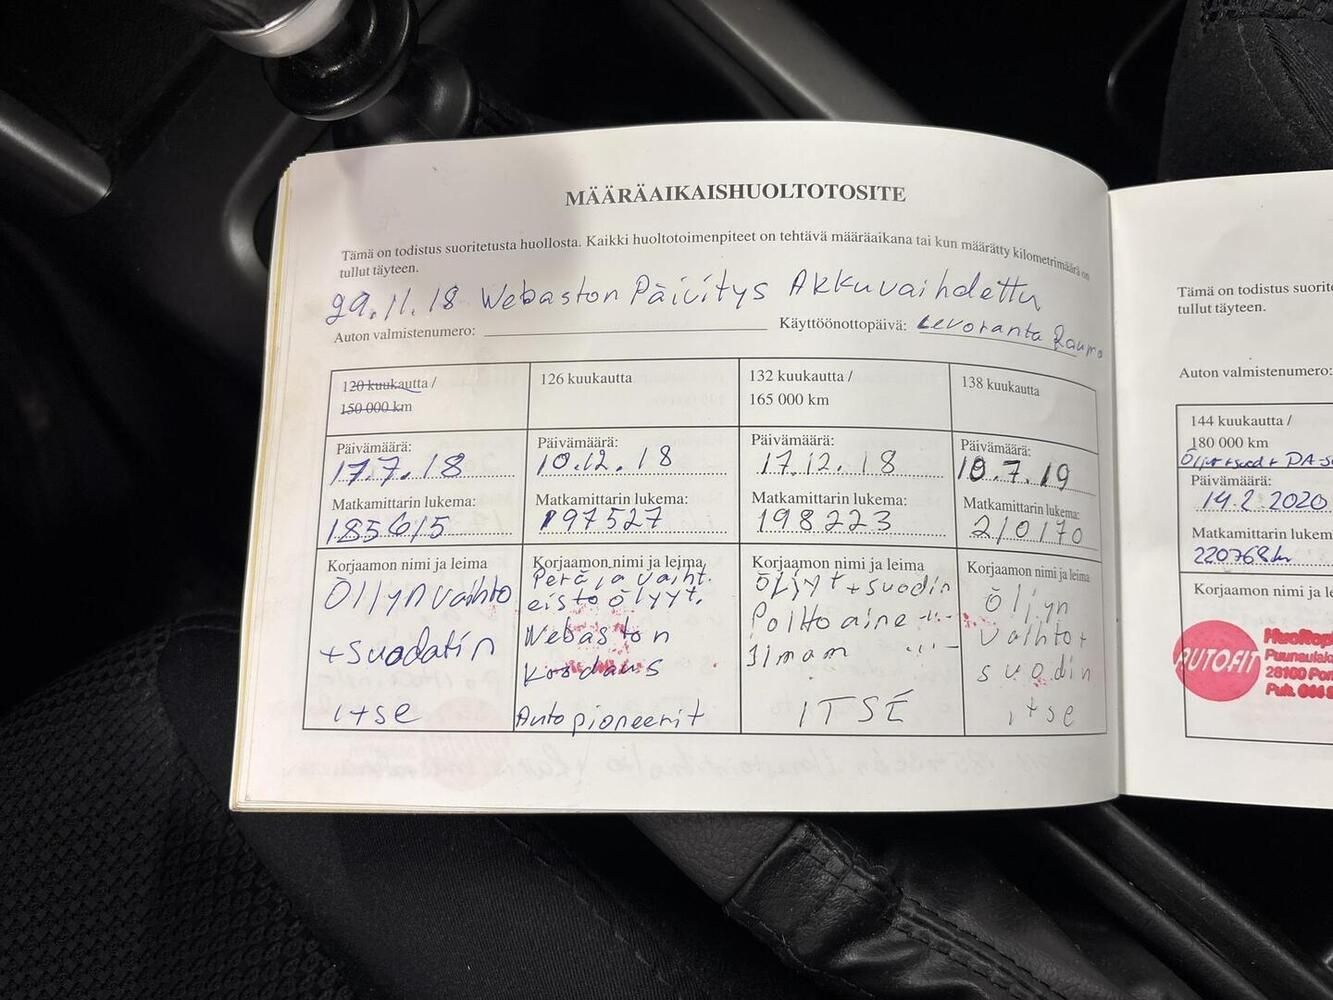 MÄÄRÄAIKAISHUOLTOTOSITE
Tämä on todistus suoritetusta huollosta. Kaikki huoltotoimenpiteet on tehtävä määräaikana tai kun määrätty kilometrimäärä on
tullut täyteen.
29.11.18 Webaston Päivitys Akkuvaihdettu
Auton valmistenumero:
Käyttöönottopäivä: Levoranta Rauma
120 kuukautta /
150 000 km
Päivämäärä:
17.7.18
Matkamittarin lukema:
185615
Korjaamon nimi ja leima
Öljynvaihto
+suodatin
itse
126 kuukautta
Päivämäärä:
10.12.18
Matkamittarin lukema:
197527
Korjaamon nimi ja leima
Perä ja vaiht.
eisto ölyyt.
Webaston
koodaus
Autopioneerit
132 kuukautta /
165 000 km
Päivämäärä:
17.12.18
Matkamittarin lukema:
198223
Korjaamon nimi ja leima
öljyt+suodin
Polttoaine -"-
Ilman -"-
ITSE
138 kuukautta
Päivämäärä:
10.7.19
Matkamittarin lukema:
210170
Korjaamon nimi ja leima
öljyn
vaihto+
suodin
itse
Tämä on todistus suorite
tullut täyteen.
Auton valmistenumero:
144 kuukautta /
180 000 km
Päivämäärä:
14.2.2020
Matkamittarin lukem
220768km
Korjaamon nimi ja le
AUTOFIT
Huoltop
28100 Por
Puh.